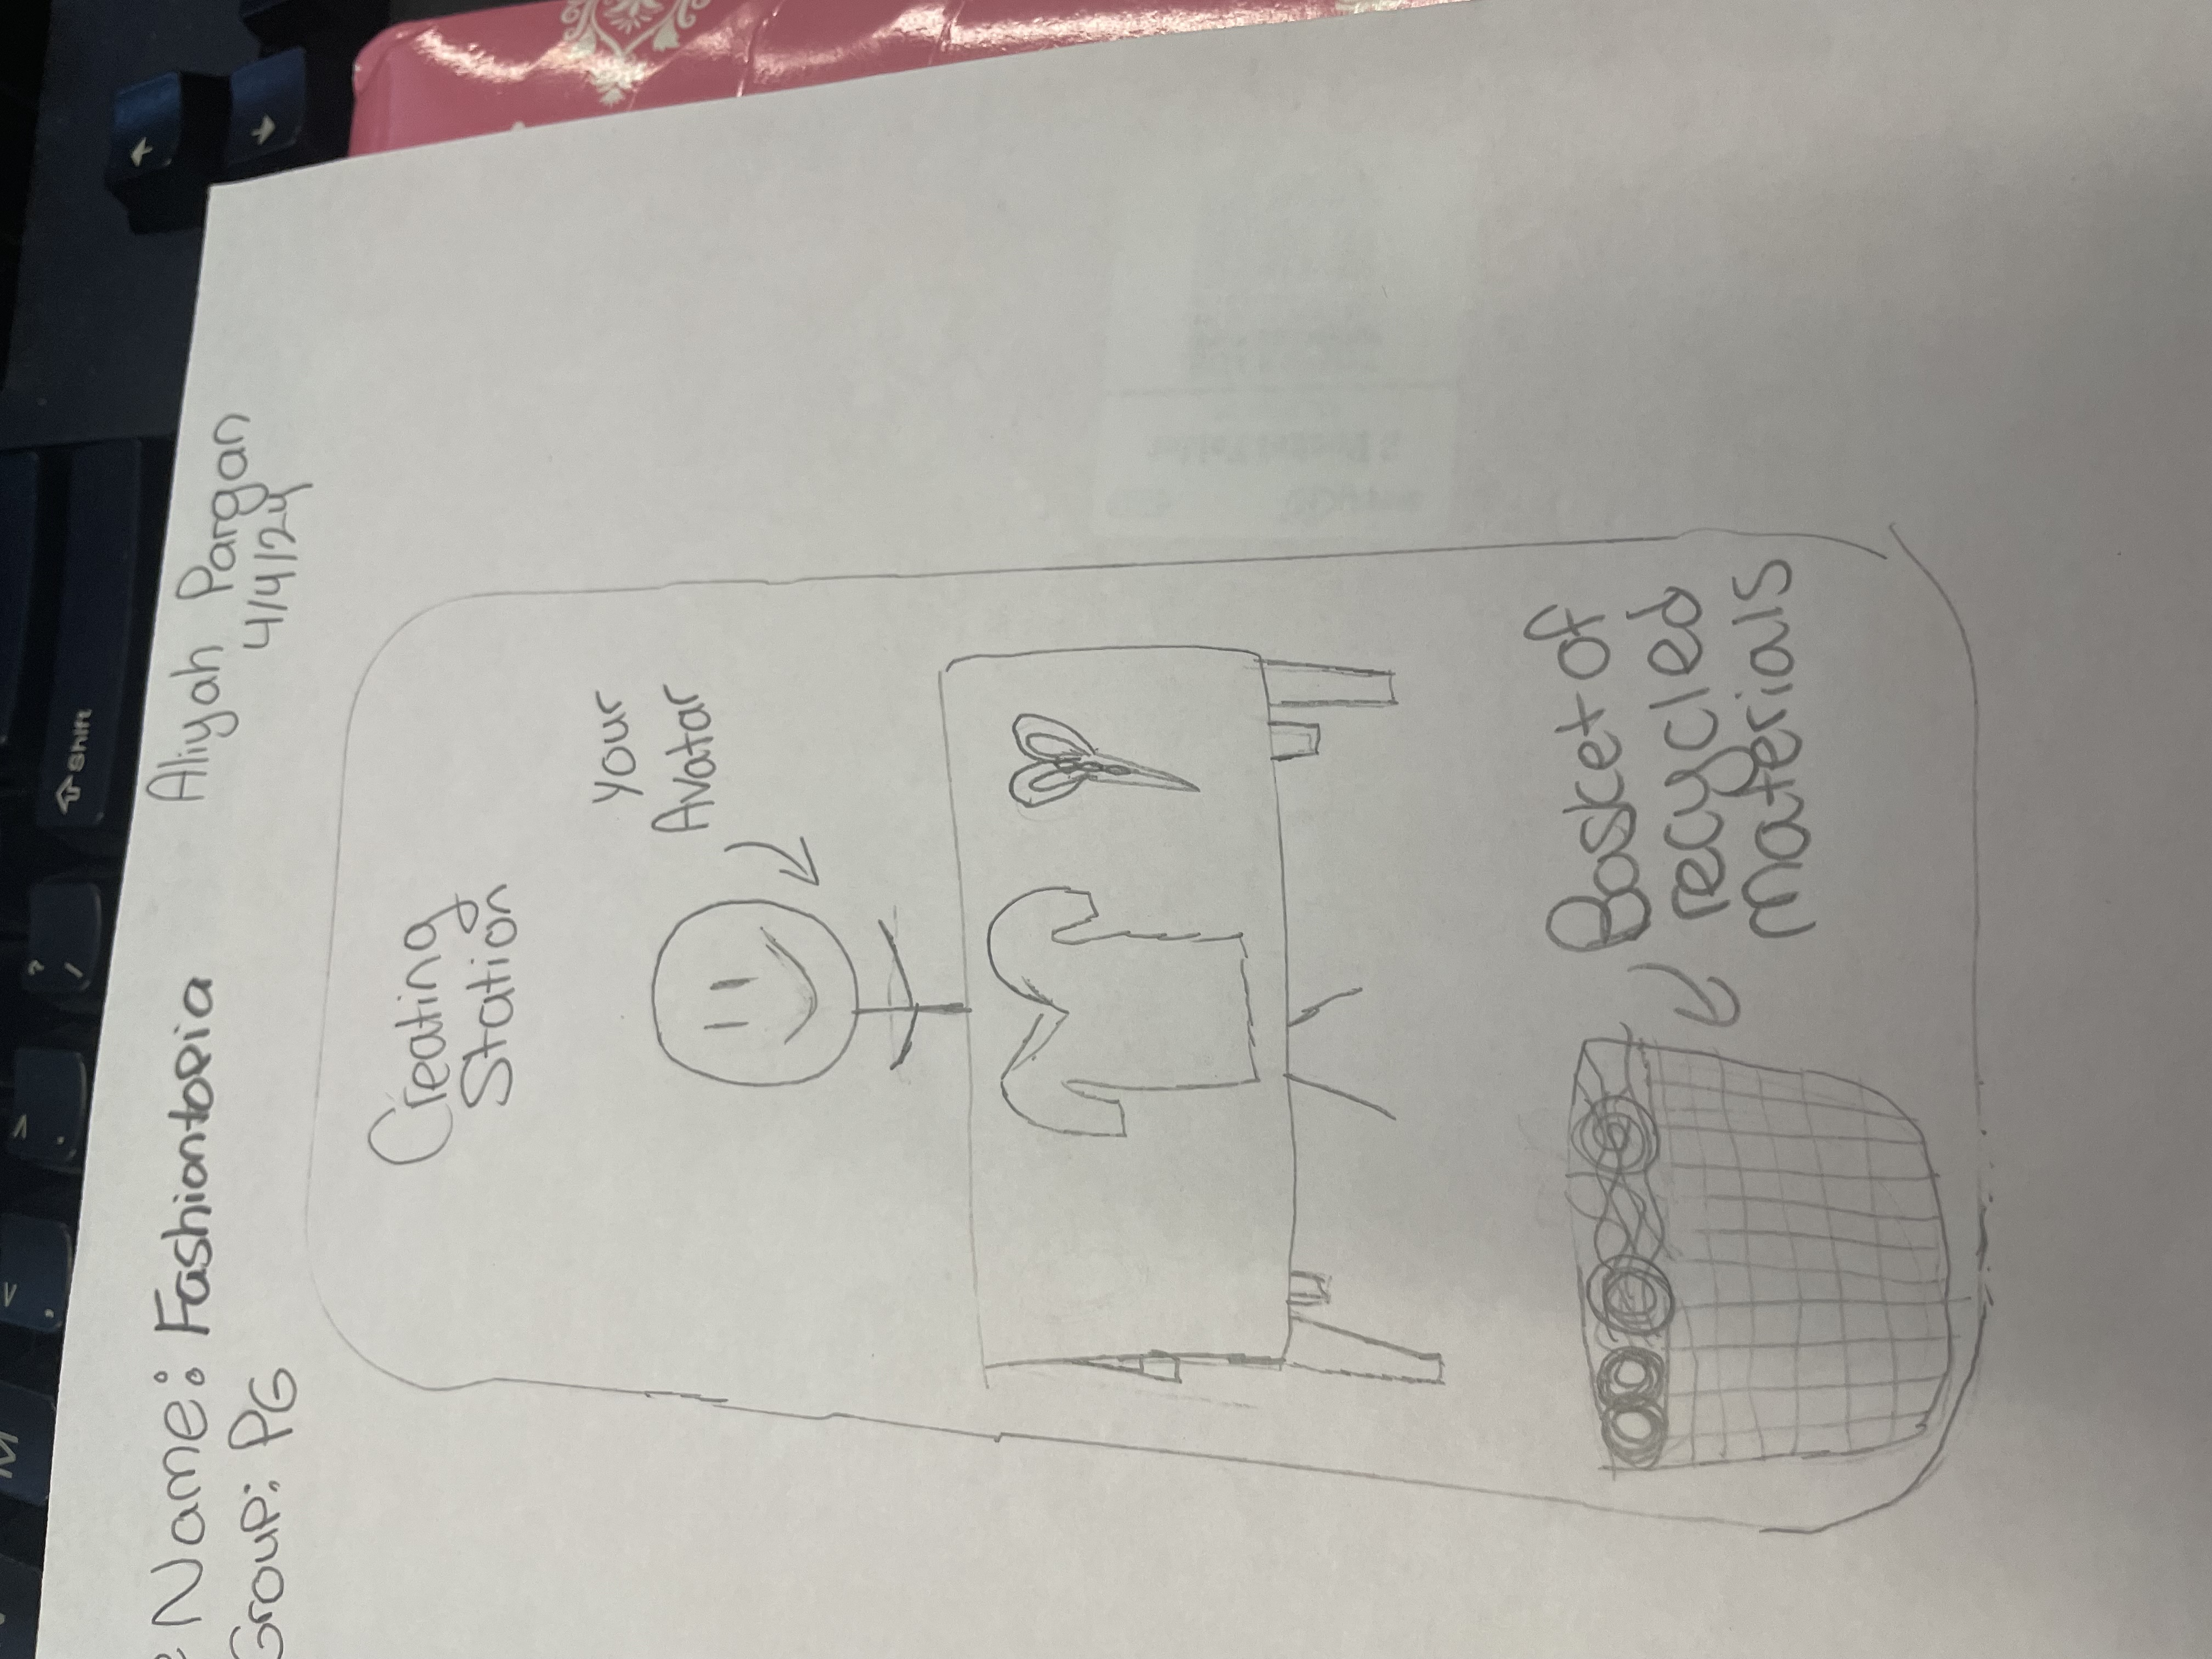 Name: Fashiontopia
Aliyah Pargan
Group: PG
4/4/24
Creating
Station
Your
Avatar
Basket of
recycled
materials
M
<
,
>
.
?
/
Shift